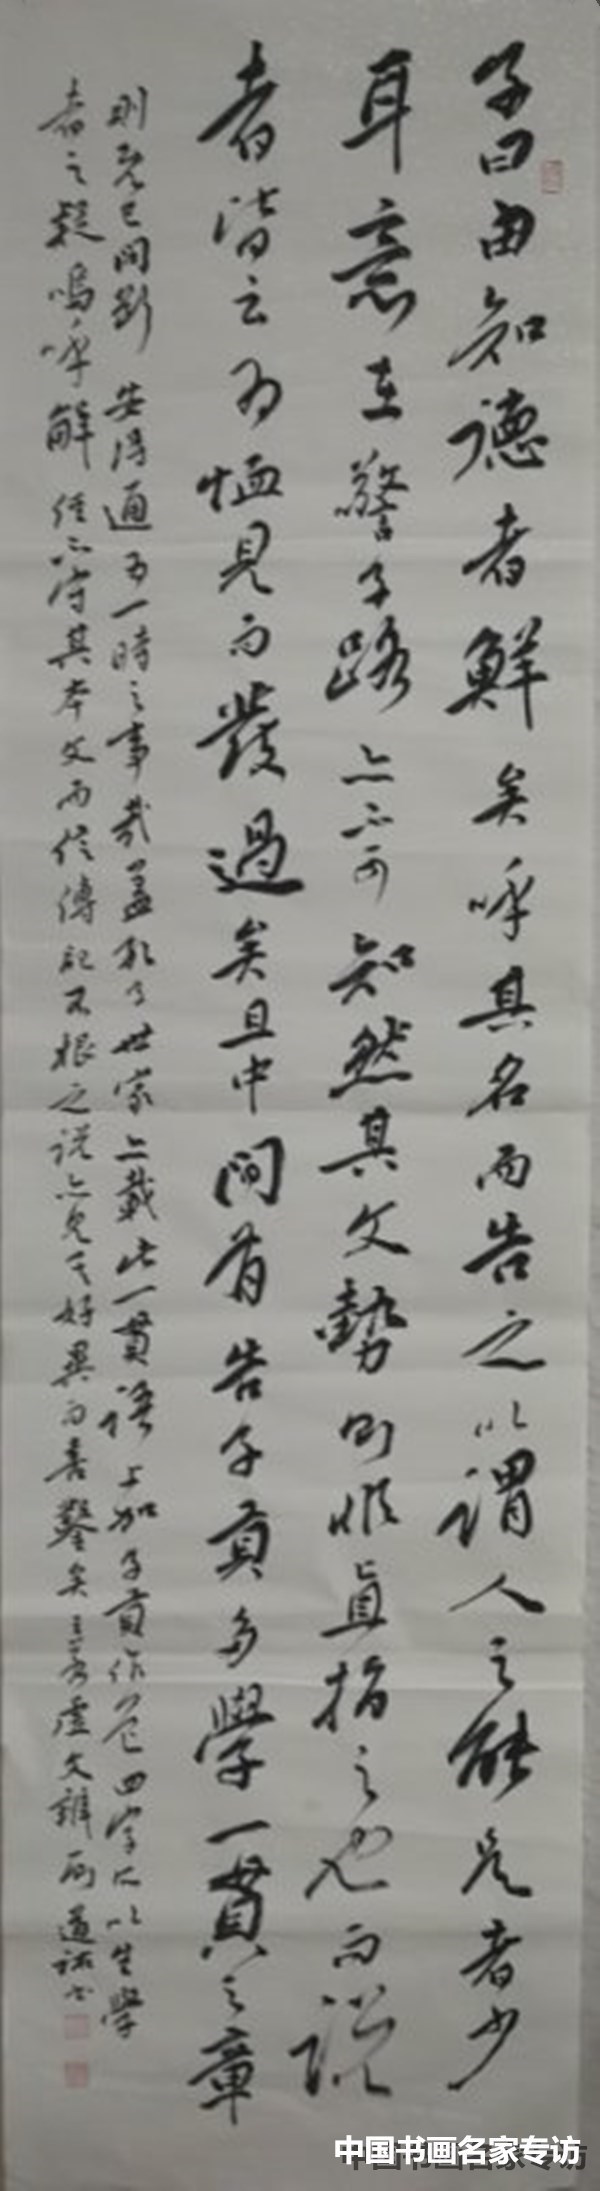 子曰由知德者鮮矣呼其名而告之以謂人之能是者少
耳意在警子路亦不可知然其文勢則惟直指之也而說
者皆云為慍見而發過矣且中間有告子貢多學一貫之章
則既已間斷安得通為一時之事哉蓋孔子世家亦載此一貫語上加子貢作色四字所以生學
者之疑嗚呼解經不守其本文而信傳記不根之說亦見其好異而喜鑿矣王若虛文辨 道 書
中国书画名家专访